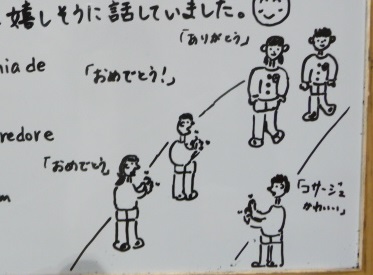 嬉しそうに話していました。
「ありがとう」
nia de
「おめでとう!」
redore
「おめでとう」
「コサージュ
かわいい」
m